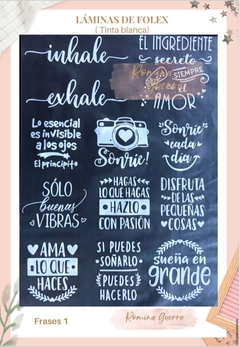 LÁMINAS DE FOLEX
( Tinta blanca)
inhale
exhale
EL INGREDIENTE
secreto
ES SIEMPRE
EL
AMOR
Lo esencial
es invisible
a los ojos
El principito
Sonríe!
Sonríe
cada
día
SÓLO
Buenas
VIBRAS
HAGAS
LO QUE HAGAS
HAZLO
CON PASIÓN
DISFRUTA
DE LAS
PEQUEÑAS
COSAS
AMA
LO QUE
HACES
SI PUEDES
SOÑARLO
PUEDES
HACERLO
sueña en
grande
Frases 1
Romina Guerra